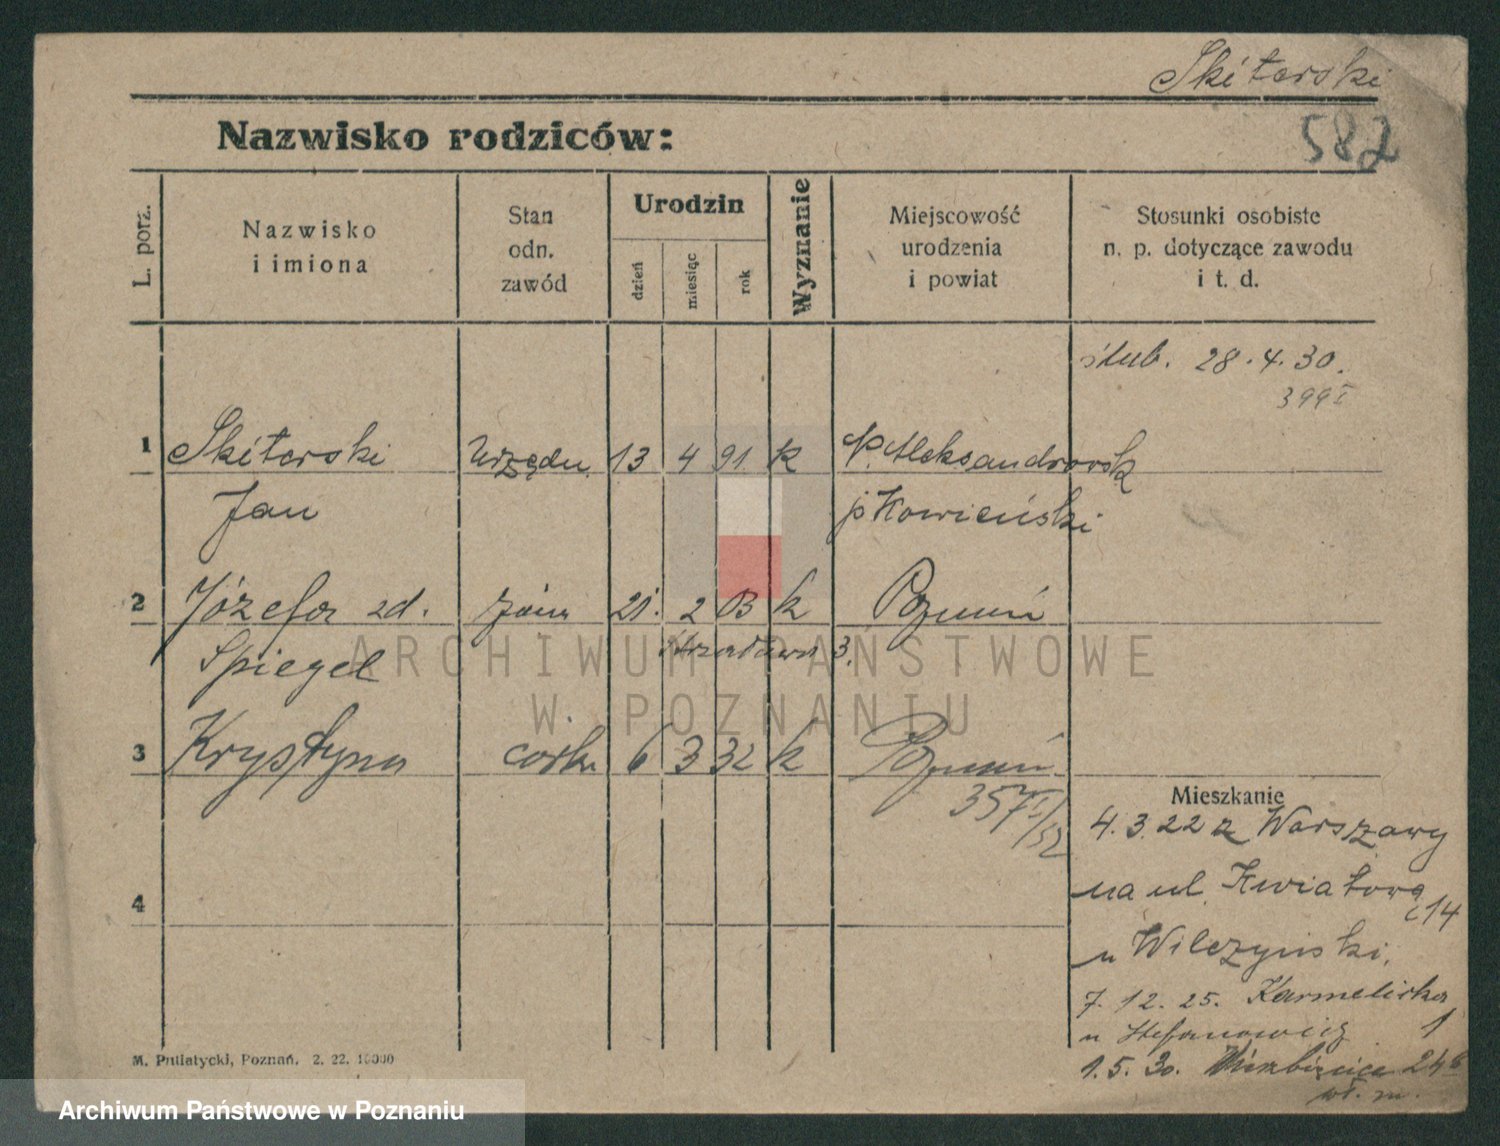 Skiterski
Nazwisko rodziców:
582
L. porz.
Nazwisko
i imiona
Stan
odn.
zawód
Urodzin
dzień
miesiąc
rok
Wyznanie
Miejscowość
urodzenia
i powiat
Stosunki osobiste
n. p. dotyczące zawodu
i t. d.
ślub. 28.4.30.
399 I
1 Skiterski Urzędn. 13 4 91. k Aleksandrowsk
Jan p Kowieński
2 Józefa zd. żona 21. 2 03 k Poznań
Spiegel 3.
3 Krystyna córka 6 3 32 k Poznań
357 I/32
4
Mieszkanie
4.3.22 z Warszawy
na ul. Kwiatową
14
u Wilczyński,
7.12.25. Karmelicka
u Stefanowicz 1
1.5.30. Wierzbięcice 24
M. Putiatycki, Poznań. 2. 22. 10000
ARCHIWUM PAŃSTWOWE
W POZNANIU
Archiwum Państwowe w Poznaniu